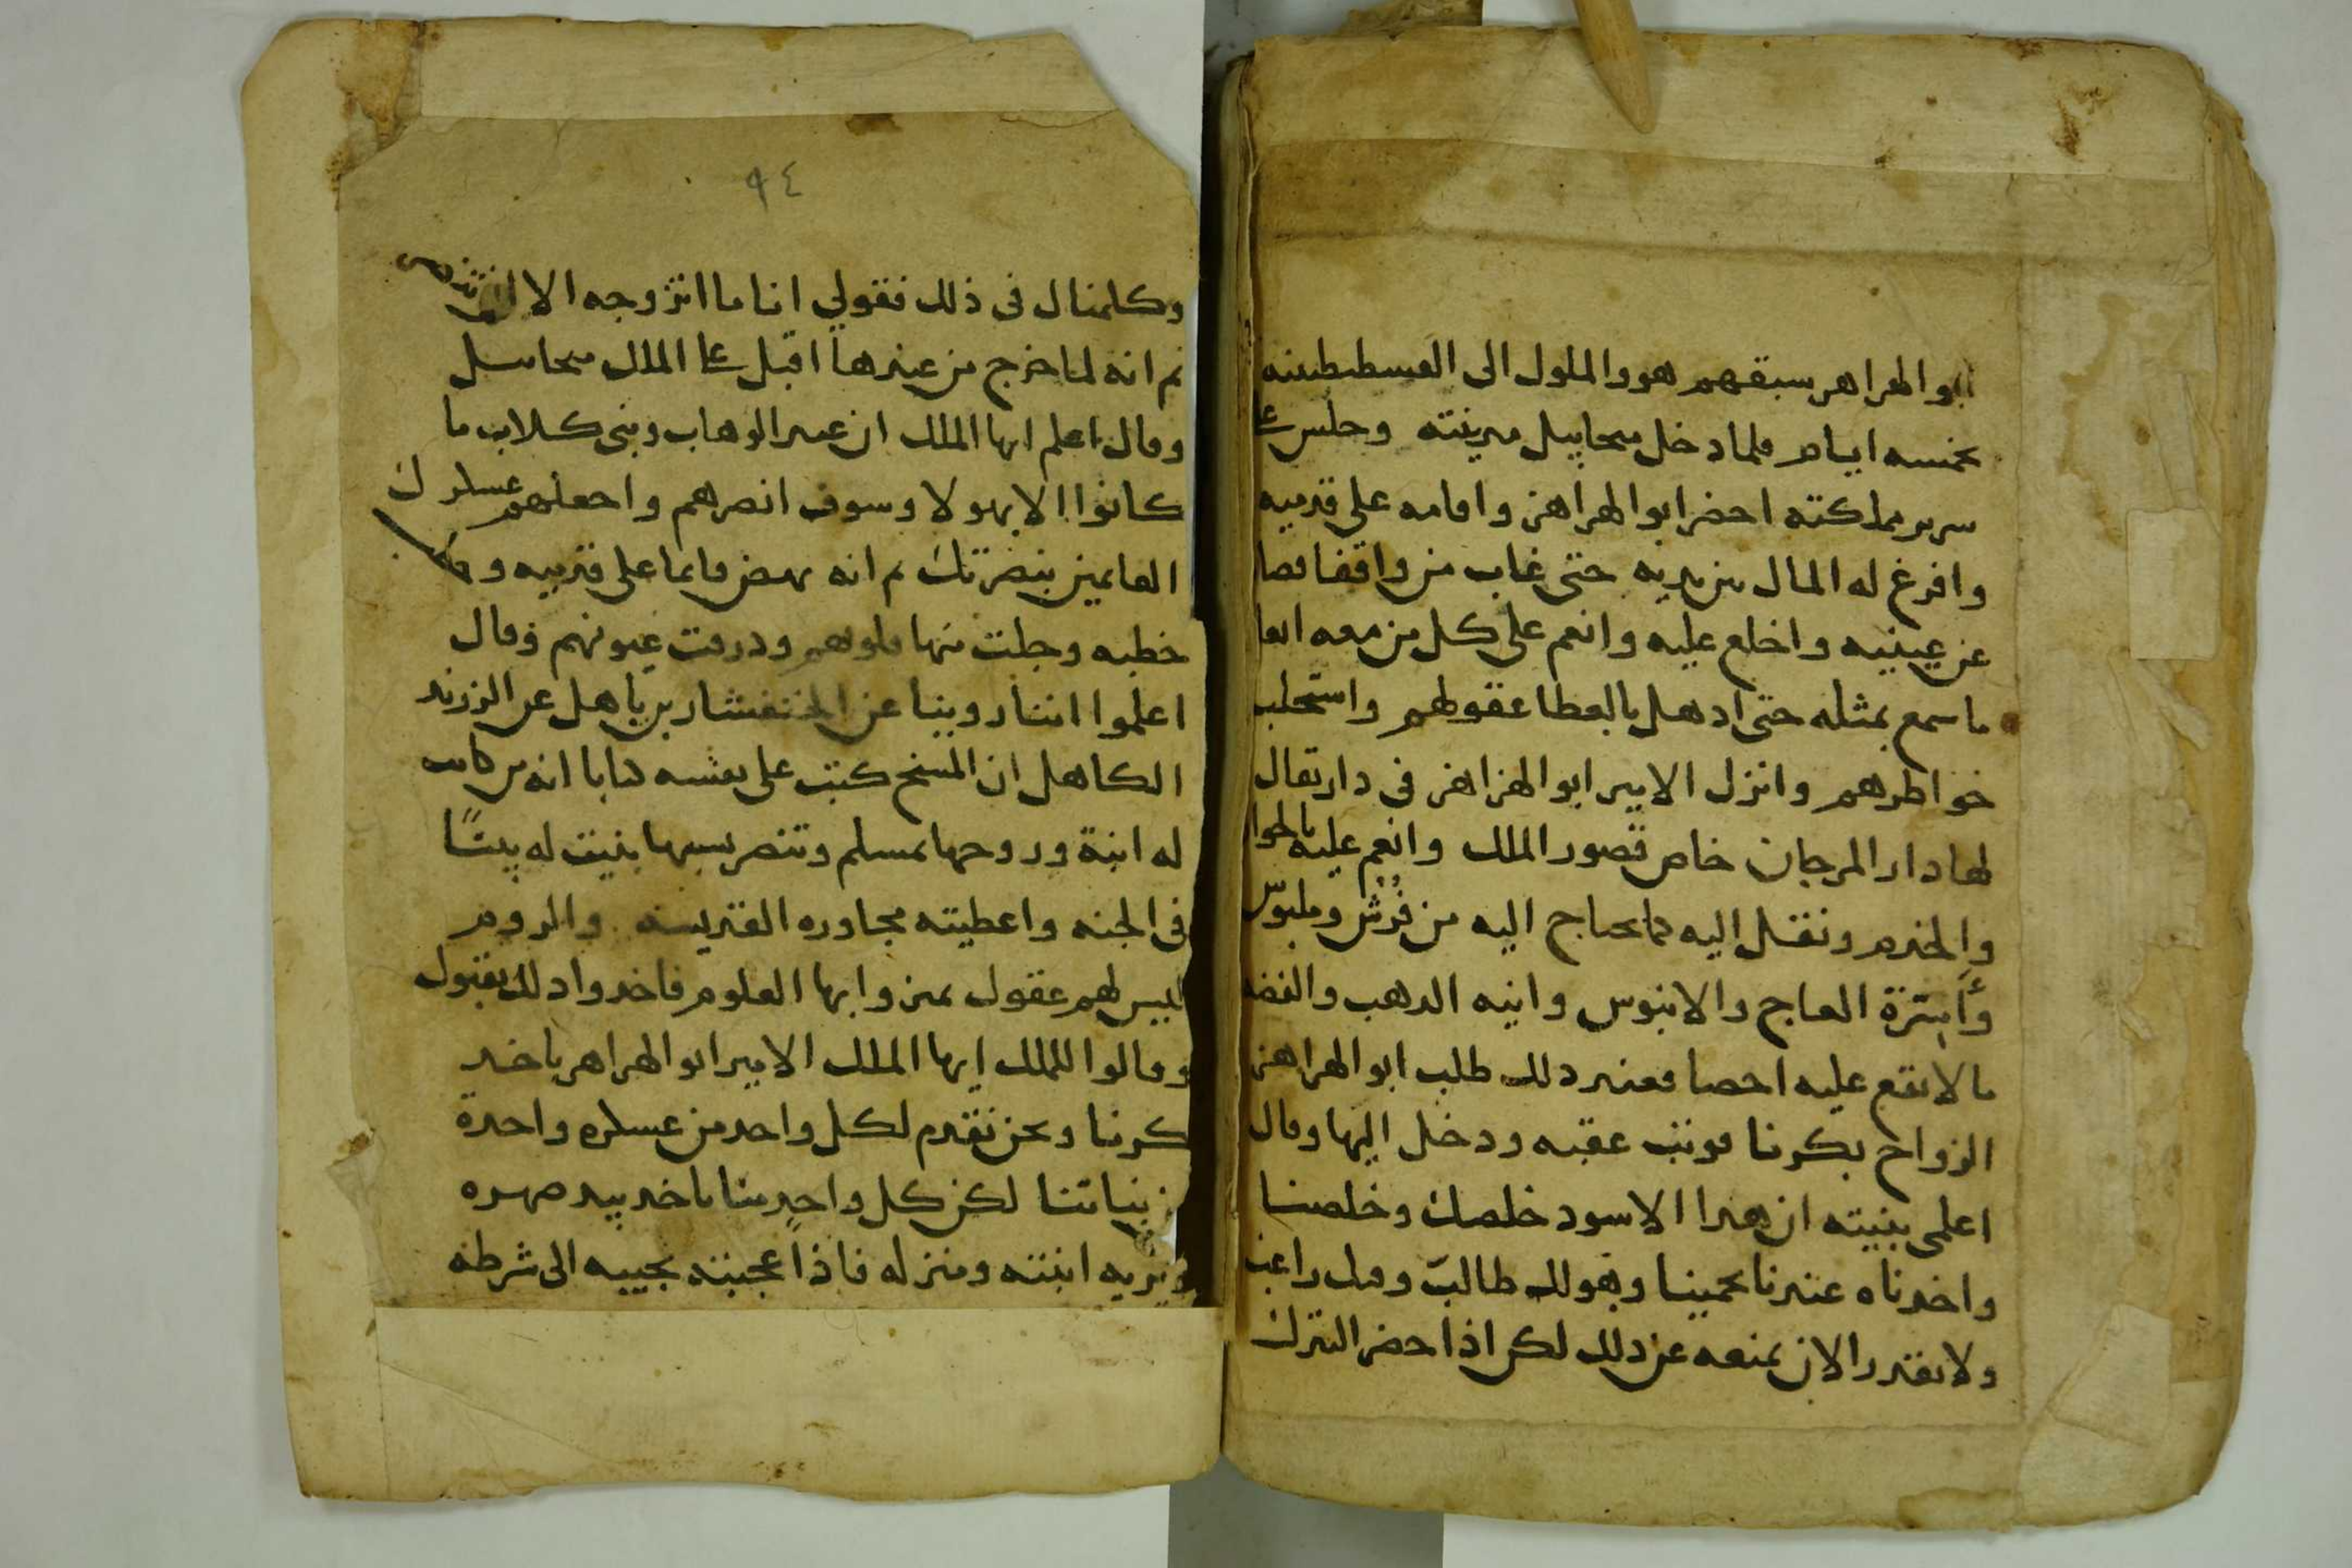 ابو الهزاهز سبقهم هو والملوك الى القسطنطينه
بخمسه ايام فلما دخل ميخاييل مدينته وجلس على
سرير مملكته احضر ابو الهزاهز واقامه على قدميه
وافرغ له المال بين يديه حتى غاب من واقفا قصا
عن عينيه واخلع عليه وانعم على كل من معه انعا
ما سمع بمثله حتى ادهل بالعطا عقولهم واستجلب
خواطرهم وانزل الامير ابو الهزاهز في دار تقال
لها دار المرجان خاص قصور الملك وانعم عليه بالجوا
والخدم ونقل اليه ما يحتاج اليه من فرش وملبوس
وأسرة العاج والابنوس وانيه الدهب والفضه
ما لا يقع عليه احصا فعند دلك طلب ابو الهزاهز
الزواج بكرنا فوتب عقبه ودخل اليها وقال
اعلمى بنيته ان هدا الاسود خلصك وخلصنا
واخدناه عندنا يحمينا وهو لك طالب وفيك راغب
ولا نقدر الان نمنعه عن دلك لكن اذا حضر البترك
٩٤
وكلمنا في ذلك فقولي انا ما اتزوجه الا ان يتنصر
ثم انه لما خرج من عندها اقبل على الملك ميخاييل
وقال اعلم ايها الملك ان عبد الوهاب وبني كلاب ما
كانوا الا بهولا وسوف انصرهم واجعلهم عسكرك
القايمين بنصرتك ثم انه نهض قايما على قدميه و
خطبه وجلت منها قلوبهم ودرفت عيونهم وقال
اعلموا اننا روينا عن الخنفشار بن ياهل عن الزرند
الكاهل ان المسيح كتب على نفسه كتابا انه من كانت
له ابنة وزوجها بمسلم وتنصر بسببها بنيت له بيتًا
في الجنه واعطيته مجاوره القديسه والروم
ليس لهم عقول يميزوا بها العلوم فاخدوا دلك بقبول
وقالوا للملك ايها الملك الامير ابو الهزاهز ياخد
كرنا ونحن نقدم لكل واحد من عسكره واحدة
من بناتنا لكن كل واحد منا ياخد بيد صهره
ويريه ابنته ومنزله فاذا عجبته يجيبه الى شرطه